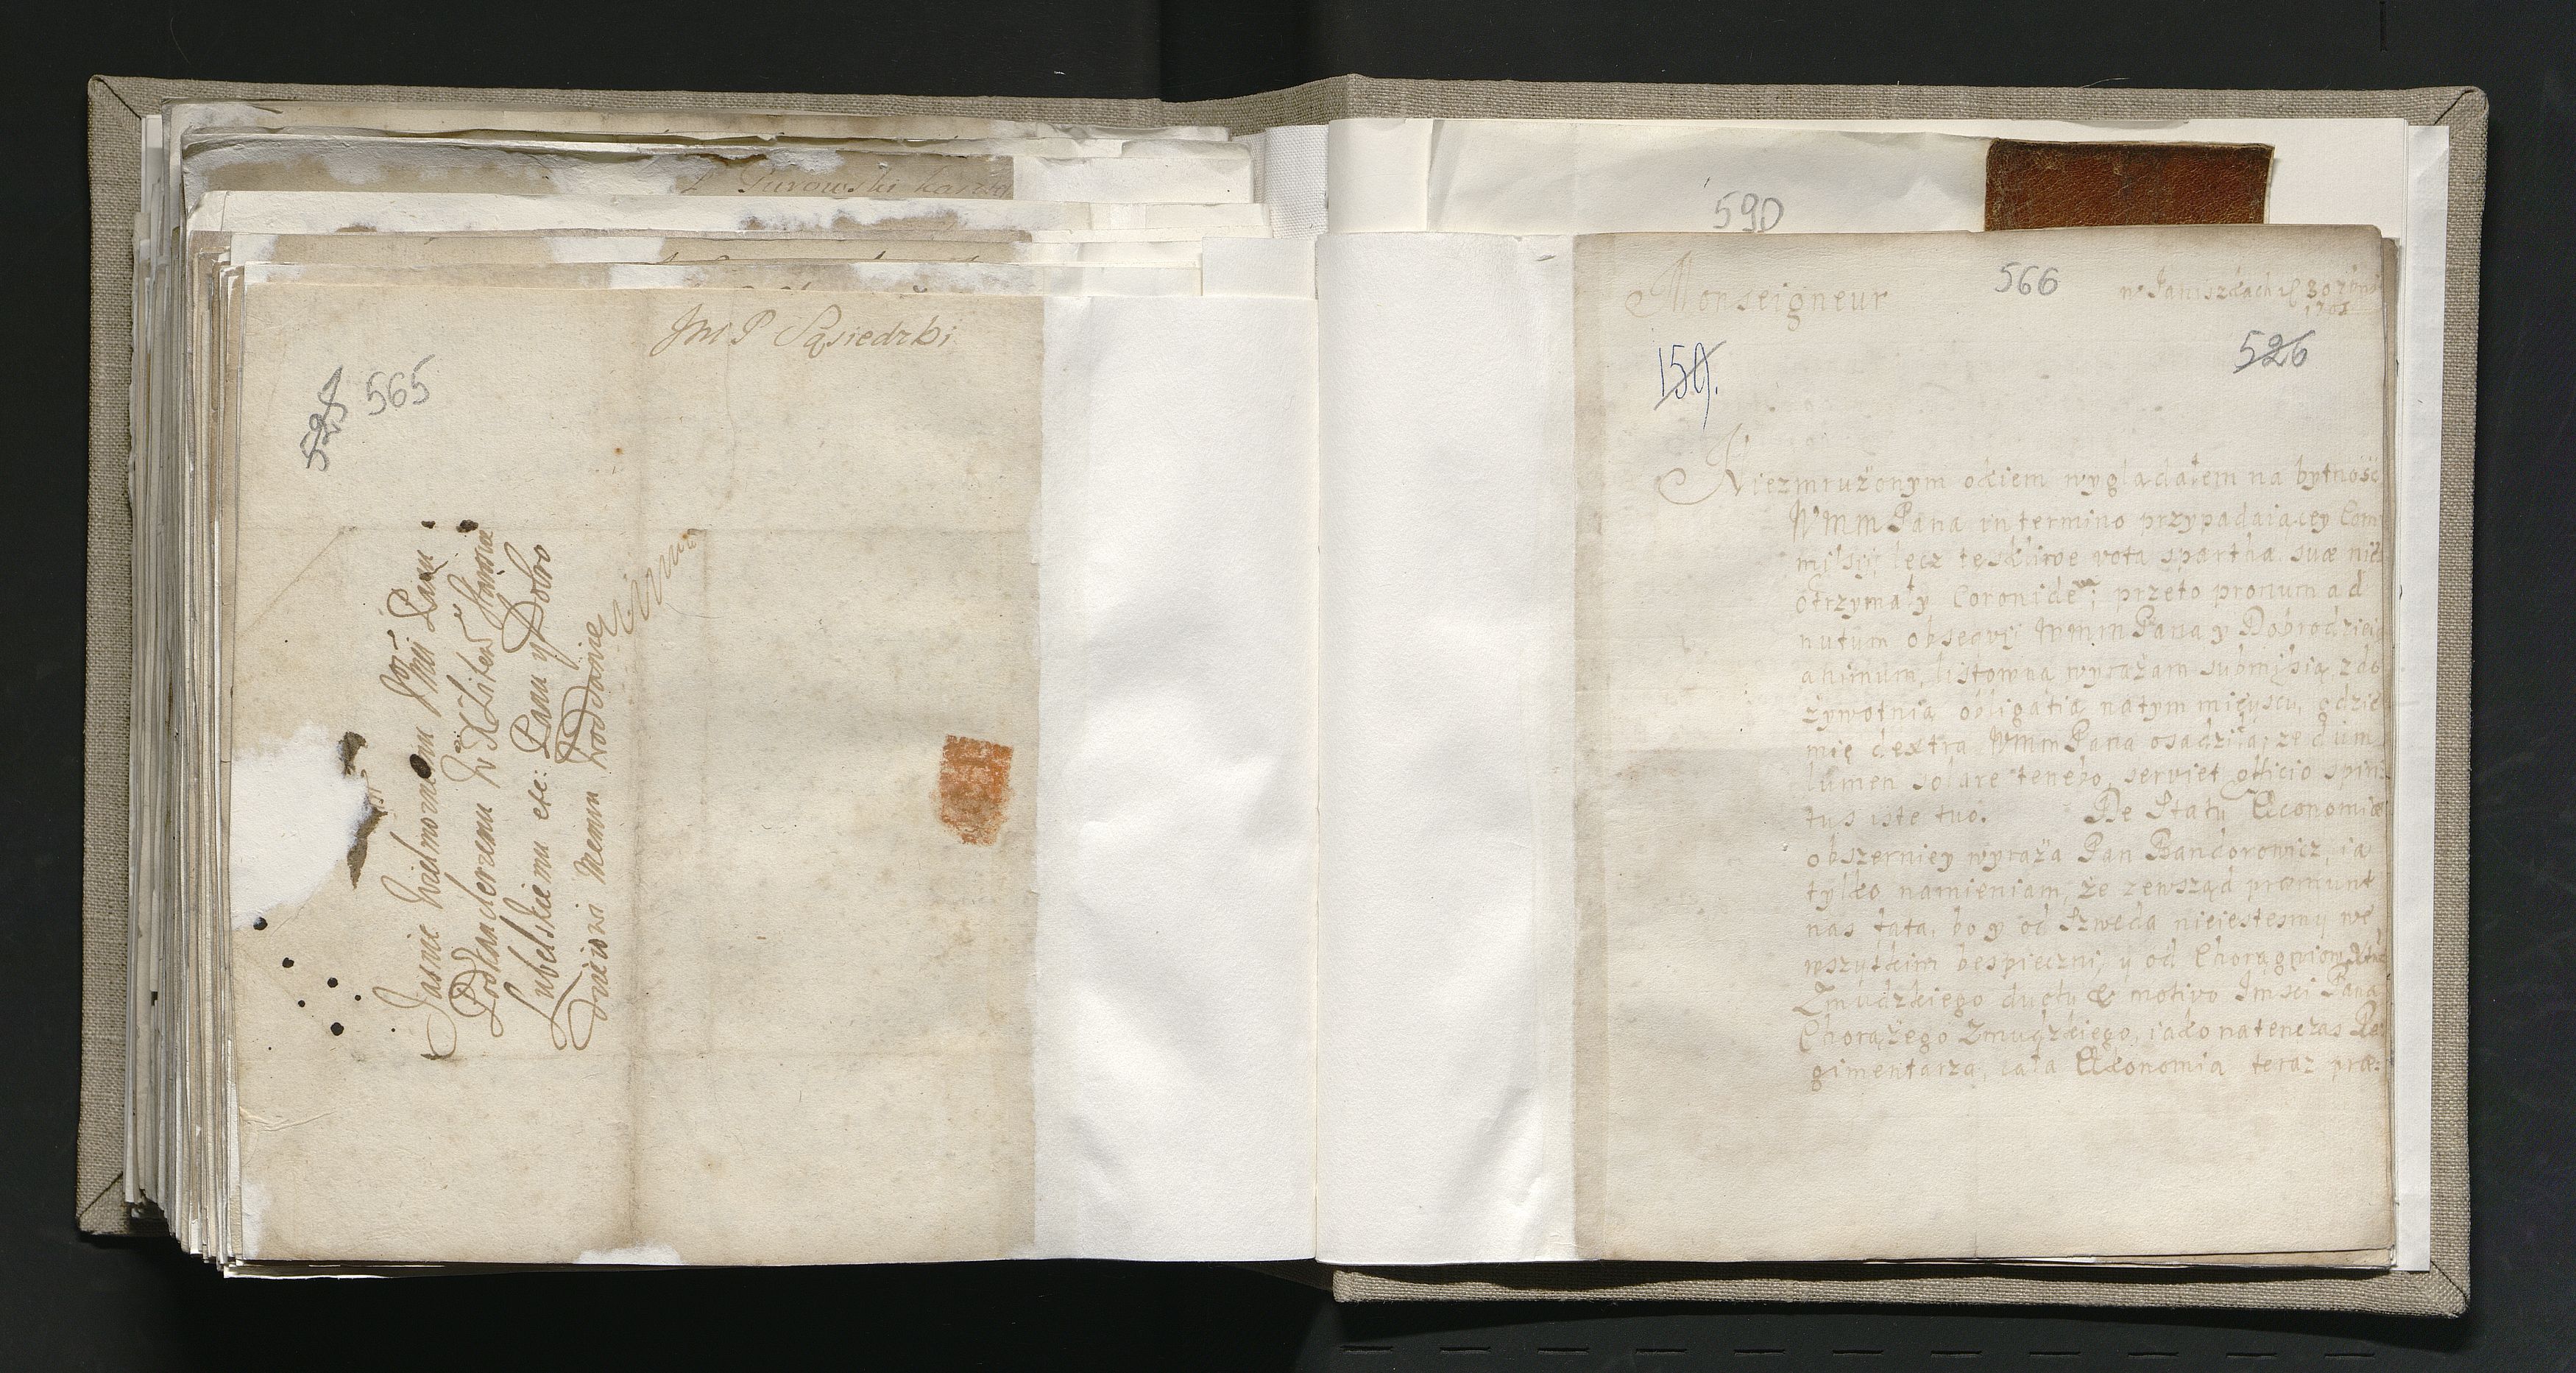 Gurowski
JM P Sąsiedzki
525 565
Jasnie Wielmoznemu Jmci Panu
Podkanclerzemu W X Litew
Lubelskiemu etc: Panu y Dobro
dzieiowi Memu
590
566
Monseigneur
w Janiszkach d 30
1701
159.
526
Niezmrużonym okiem wyglądałem na bytność
WMM Pana in termino przypadaiącey Com
misyi, lecz tęskliwe vota spartha suæ nie
otrzymały Coronidem; przeto pronum ad
nutum obseqvij WMM Pana y Dobrodzieia
animum, listowną wyrażam submisią z do
żywotnią obligatią na tym mieyscu, gdzie
mię dextra WMM Pana osadziła, ze dum
lumen solare tenebo, serviet officio spiri
tus iste tuo. De Statu Œconomiæ
obszerniey wyraża Pan Bandorowicz, ia
tylko namieniam, że zewsząd præmunt
nas fata, bo y od Szweda nieiestesmy we
wszytkim bespieczni, y od Chorągwiow Xtwa
Zmudzkiego ductu & motivo Jmsci Pana
Chorążego Zmudzkiego, iako natenczas Re
gimentarza, cała Œkonomia teraz præ: